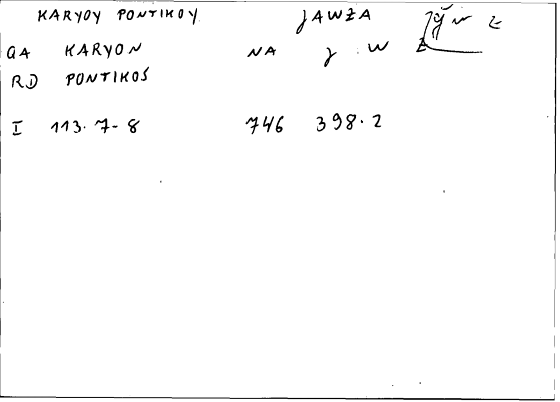 KARYOY PONTIKOY JAWZA
GA KARYON NA J W Z
RD PONTIKOS
I 113.7-8 746 398.2